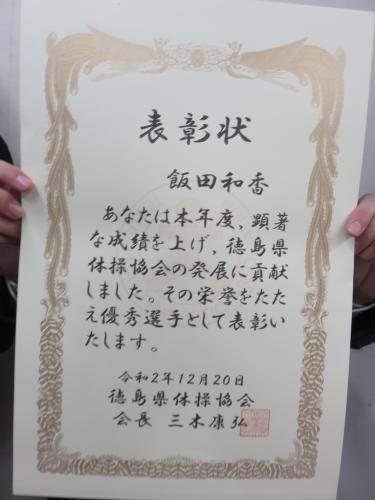 表彰状
飯田和香
あなたは本年度，顕著
な成績を上げ，徳島県
体操協会の発展に貢献
しました。その栄誉をたた
え優秀選手として表彰い
たします。
令和2年12月20日
徳島県体操協会
会長 三木康弘